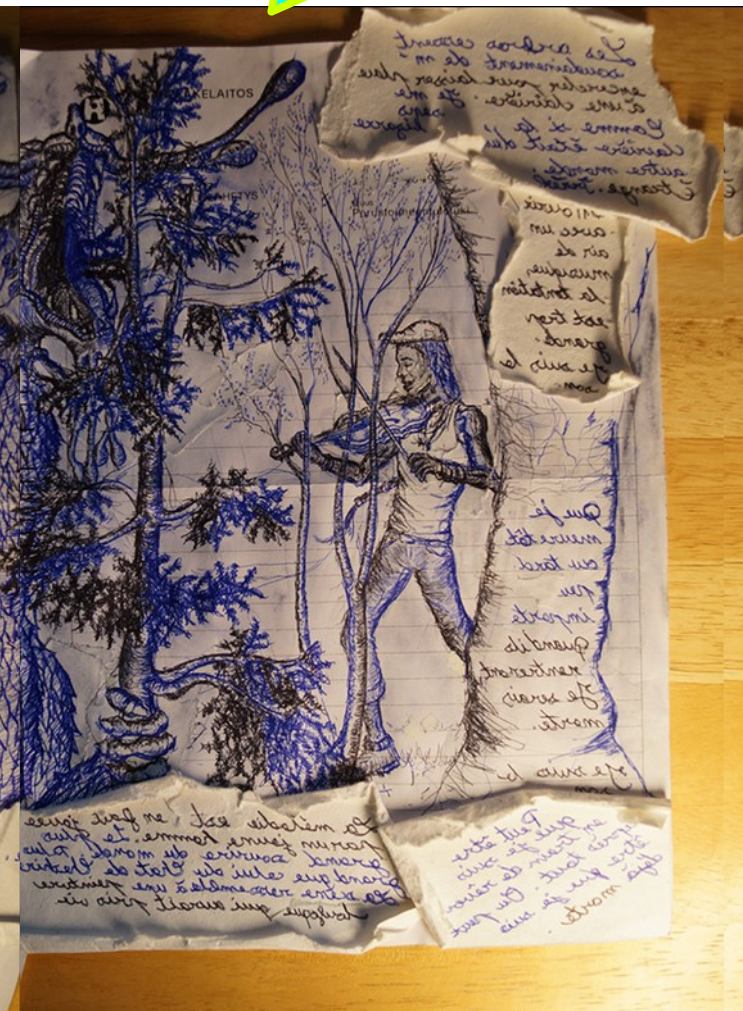 AKELAITOS
AHETYS
Les arbres cessent
soudainement de m'
encercler pour laisser place
à une clairière. Je me
sens bizarre
Comme si la
clairière était d'un
autre monde
étrange. Irréel
Mourir
avec un
air de
musique,
la tentation
est trop
grande.
Je suis le
son.
Que je
meure tôt
ou tard
peu
importe
Quand ils
rentreront
Je serais
morte
Je suis le
son
La mélodie est en fait jouée
par un jeune homme. Le plus
grand sourire du monde, plus
grand que celui du chat de Cheshire
La scène ressemble à une peinture
baroque qui aurait pris vie
Peut être
que je suis
en train de rêver
après tout. Ou peut
être que je suis
déjà
morte.